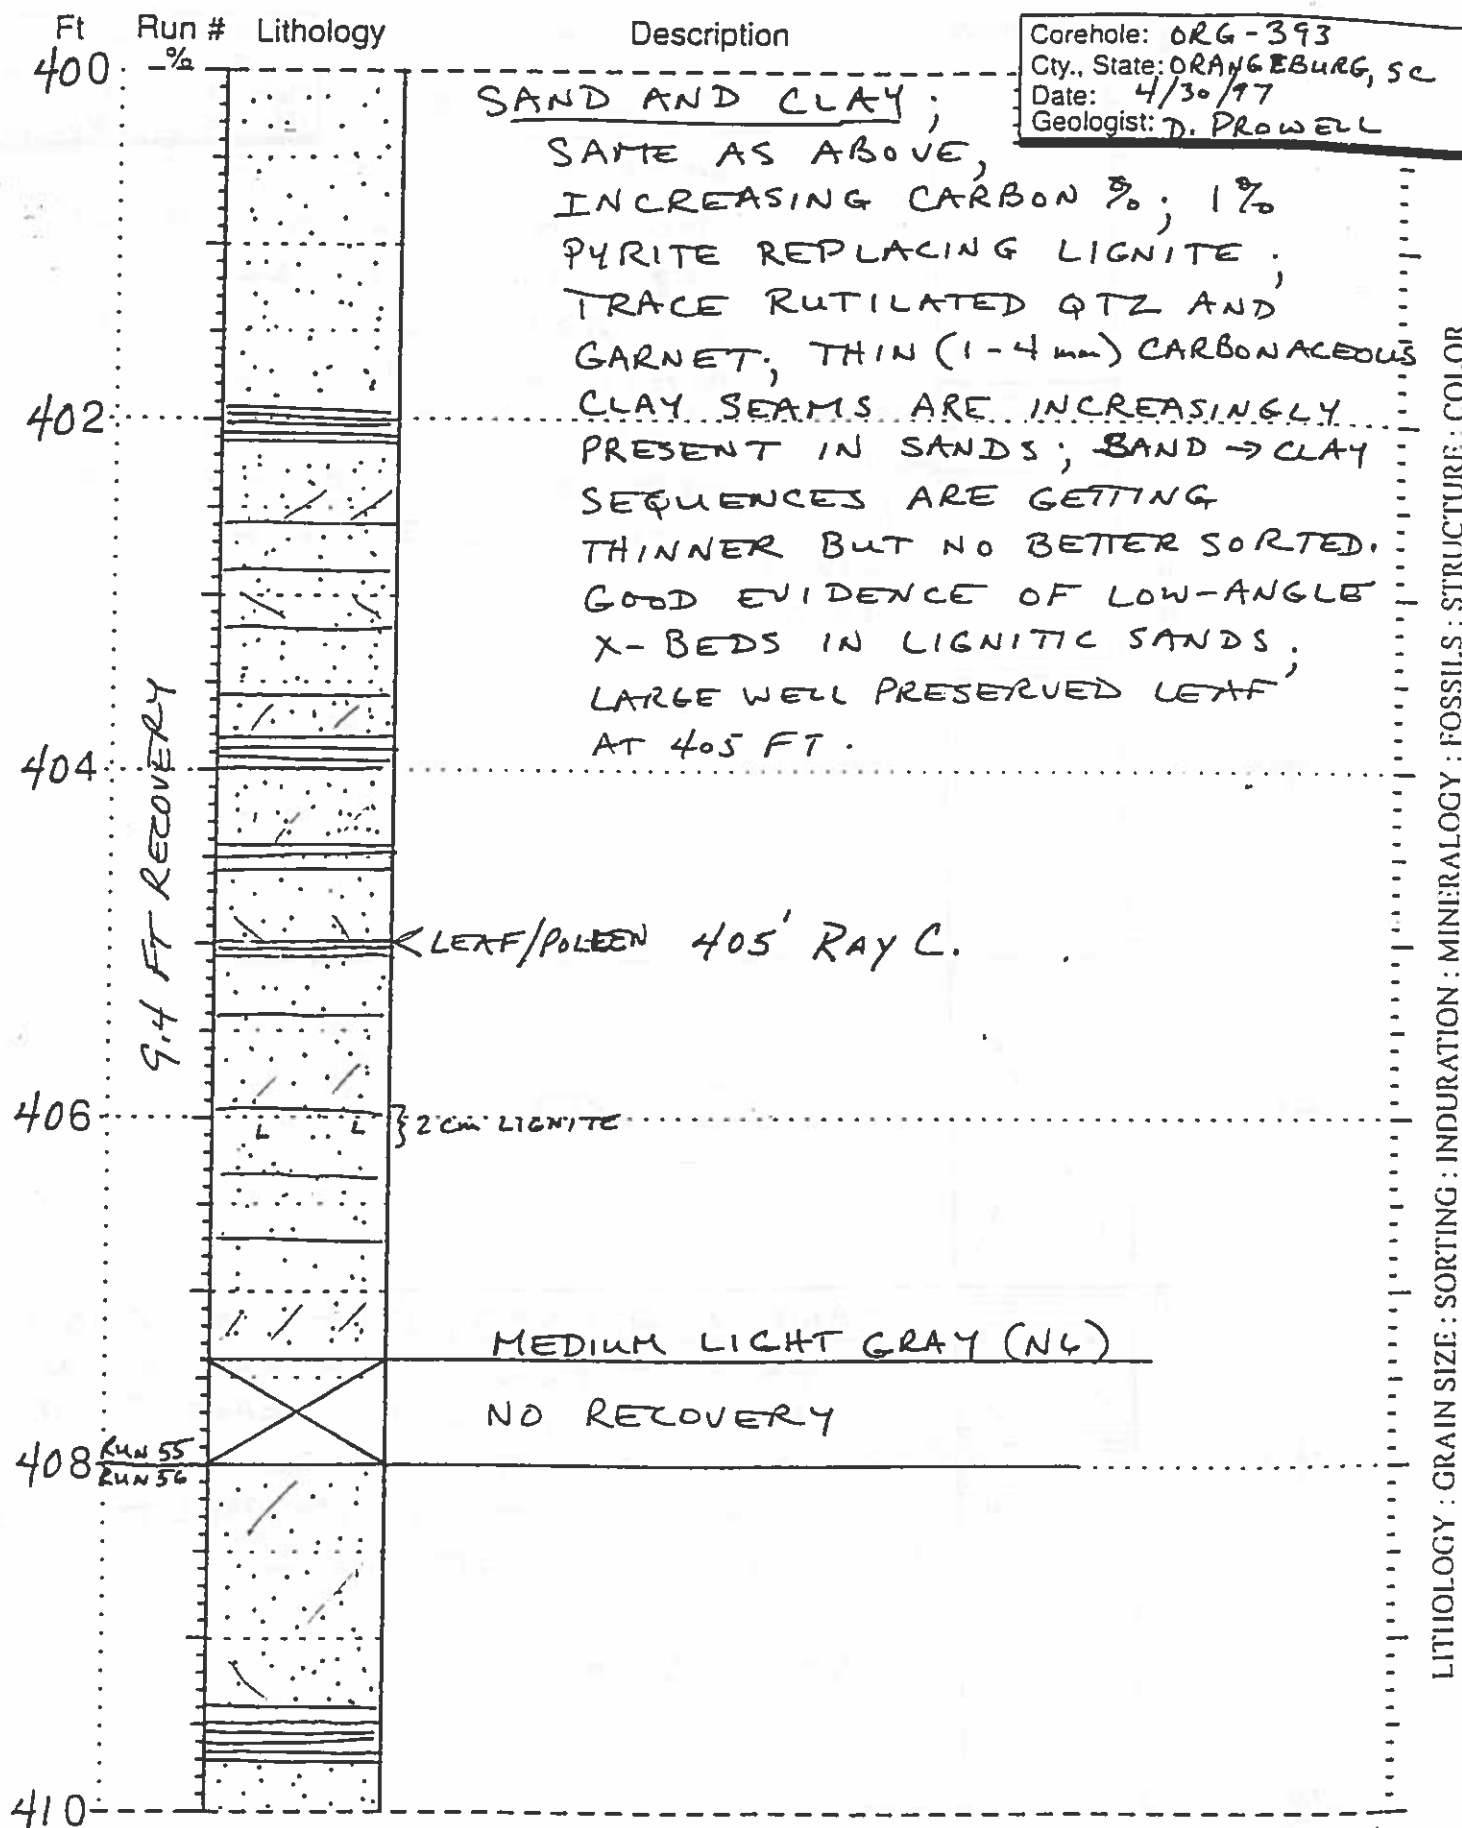 Ft Run # Lithology Description
-%
Corehole: ORG-393
Cty., State: ORANGEBURG, SC
Date: 4/30/97
Geologist: D. PROWELL
400
SAND AND CLAY;
SAME AS ABOVE,
INCREASING CARBON %; 1%
PYRITE REPLACING LIGNITE;
TRACE RUTILATED QTZ AND
GARNET; THIN (1-4 mm) CARBONACEOUS
402
CLAY SEAMS ARE INCREASINGLY
PRESENT IN SANDS; SAND → CLAY
SEQUENCES ARE GETTING
THINNER BUT NO BETTER SORTED.
GOOD EVIDENCE OF LOW-ANGLE
X-BEDS IN LIGNITIC SANDS;
LARGE WELL PRESERVED LEAF
AT 405 FT.
404
9.4 FT RECOVERY
LEAF/POLLEN 405' RAY C.
406
L L } 2 cm LIGNITE
MEDIUM LIGHT GRAY (N6)
NO RECOVERY
RUN 55
408
RUN 56
410
LITHOLOGY : GRAIN SIZE : SORTING : INDURATION : MINERALOGY : FOSSILS : STRUCTURE : COLOR